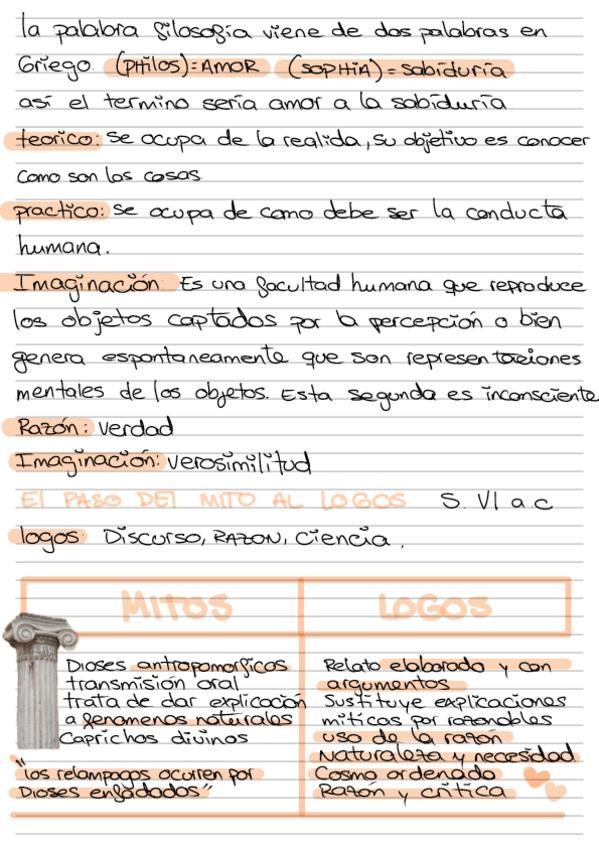 la palabra filosofía viene de dos palabras en
Griego. (PHilos)=AMOR (SOPHIA)=Sabiduría
así el termino sería amor a la sabiduría
teorico: se ocupa de la realida, su objetivo es conocer
como son las cosas
practico: se ocupa de como debe ser la conducta
humana.
Imaginación: Es una facultad humana que reproduce
los objetos captados por la percepción o bien
genera espontaneamente que son representaciones
mentales de los objetos. Esta segunda es inconsciente
Razón: verdad
Imaginación: verosimilitud
El PASO DEl MITO AL LOGOS S. VI a.c
logos: Discurso, RAZON, Ciencia.
MITOS
Dioses antropomorficos
transmisión oral
trata de dar explicación
a fenomenos naturales
Caprichos divinos
"los relampagos ocurren por
Dioses enfadados"
LOGOS
Relato elaborado y con
argumentos
Sustituye explicaciones
miticas por razonables
uso de la razón
Naturaleza y necesidad
Cosmo ordenado
Razón y critica